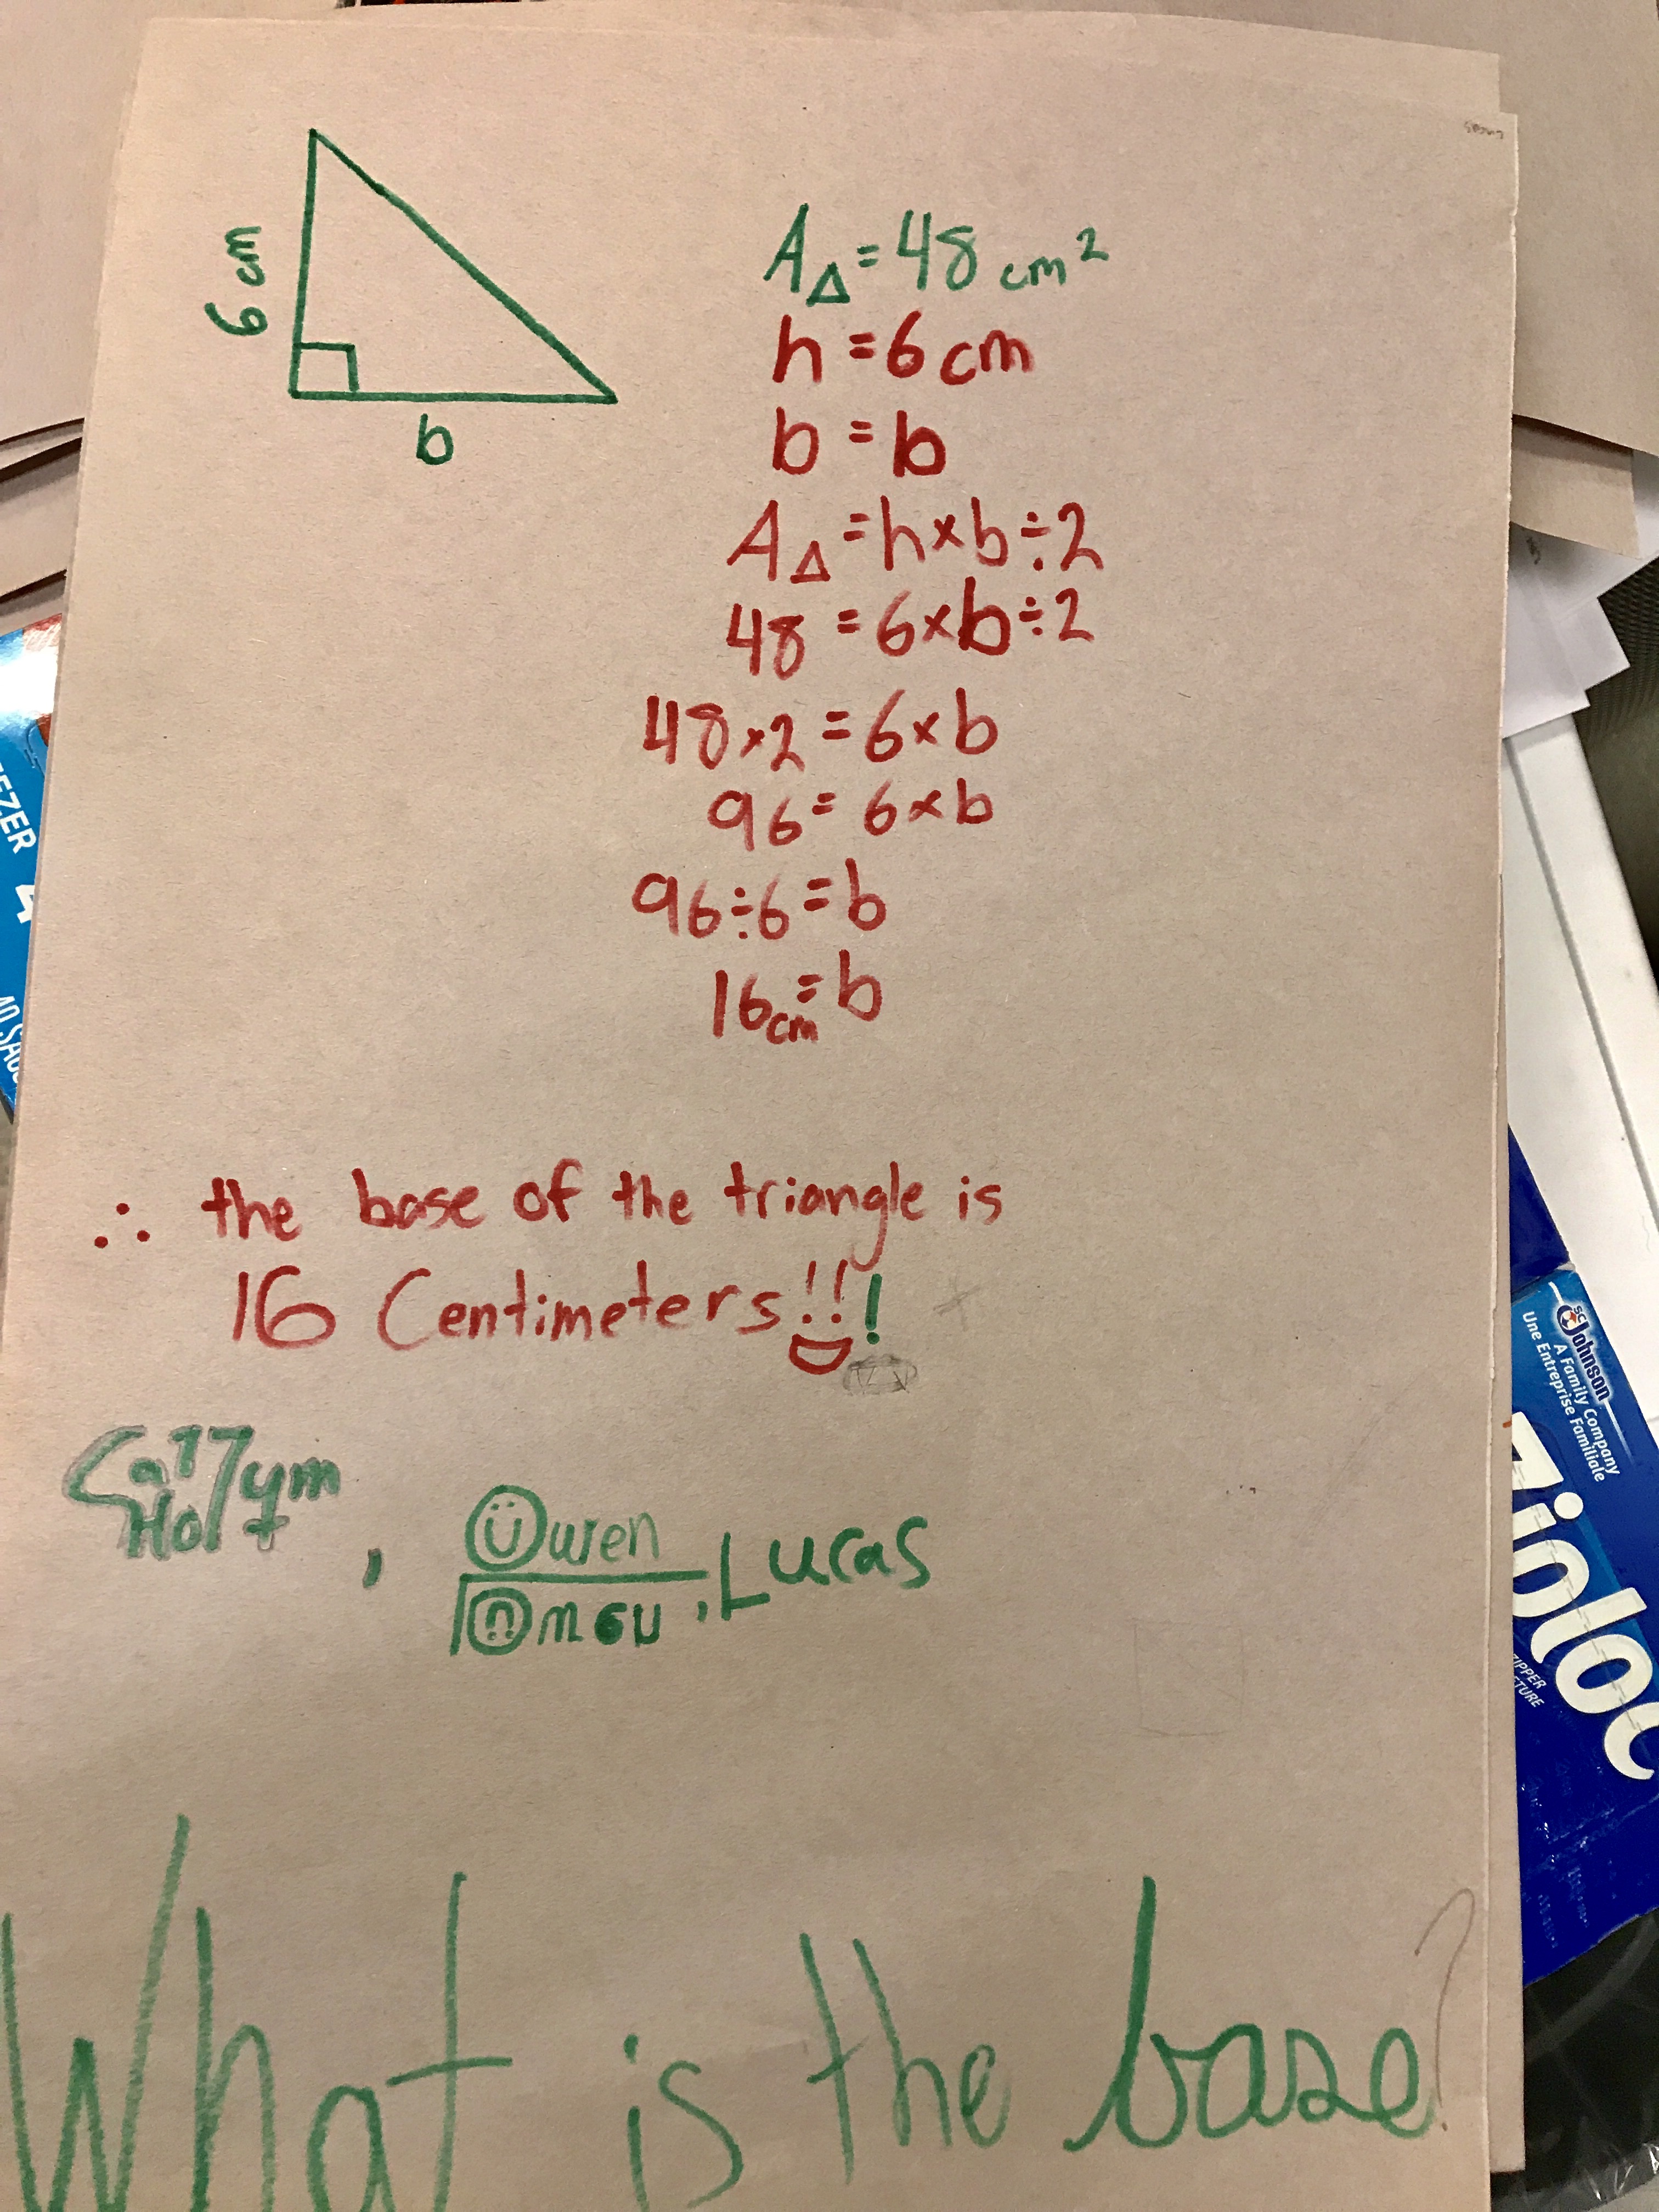 6 cm
b
A△ = 48 cm²
h = 6 cm
b = b
A△ = h × b ÷ 2
48 = 6 × b ÷ 2
48 × 2 = 6 × b
96 = 6 × b
96 ÷ 6 = b
16 cm = b
∴ the base of the triangle is
16 Centimeters!!!
Owen
, Lucas
What is the base?
EZER
SC Johnson
A Family Company
Une Entreprise Familiale
Ziploc